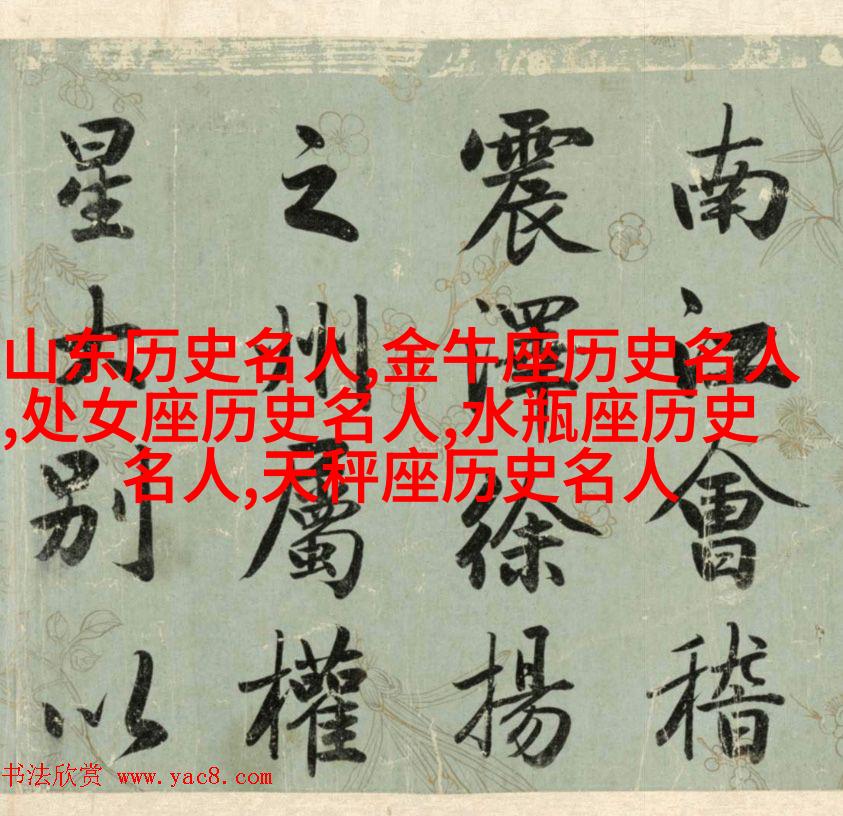 南江會稽
震澤徐揚
之州屬權
星女別以
山东历史名人,金牛座历史名人
,处女座历史名人,水瓶座历史
名人,天秤座历史名人
书法欣赏 www.yac8.com